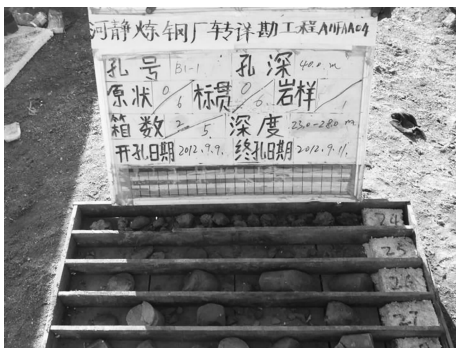 河静炼钢厂转详勘工程
孔号 B1-1 孔深 40.0 m
原状 0/6 标贯 0/6 岩样 /1
箱数 2/5 深度 23.0-28.0 m
开孔日期 2012.9.9. 终孔日期 2012.9.11.
24
25
26
27